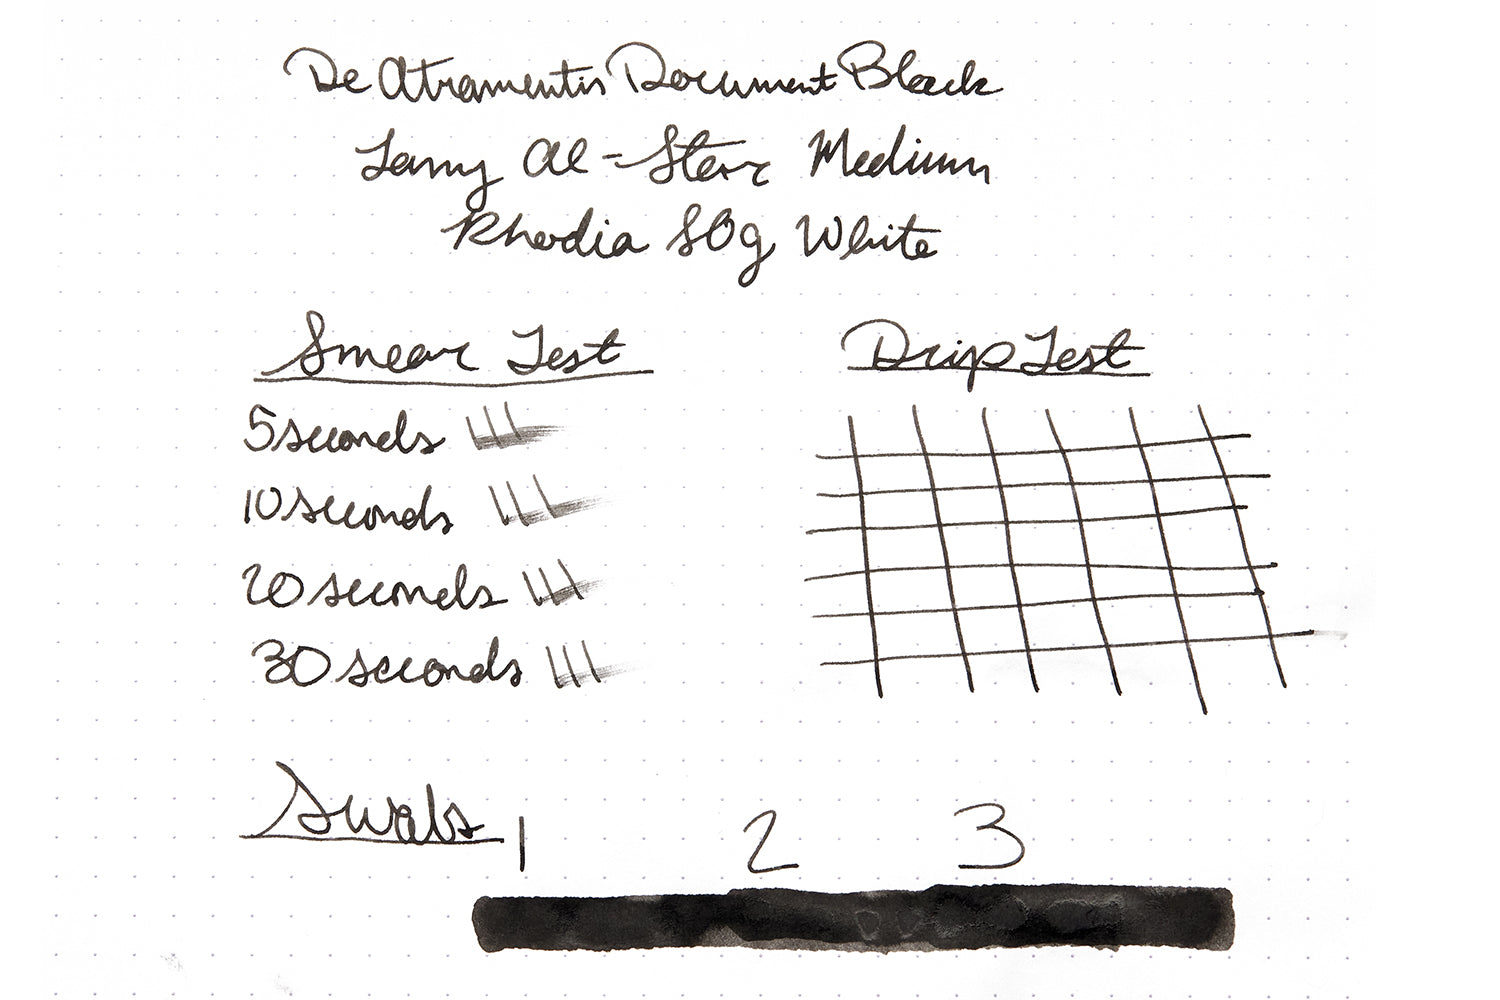 De Atramentis Document Black
Lamy Al-Star Medium
Rhodia 80g White
Smear Test
Drip Test
5 seconds
10 seconds
20 seconds
30 seconds
Swabs 1 2 3